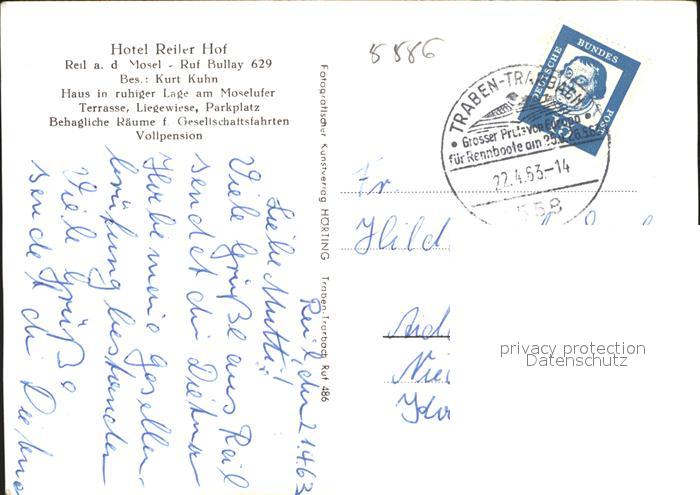 Hotel Reiler Hof
Reil a. d Mosel - Ruf Bullay 629
Bes.: Kurt Kuhn
Haus in ruhiger Lage am Moselufer
Terrasse, Liegewiese, Parkplatz
Behagliche Räume f. Gesellschaftsfahrten
Vollpension
Reil, den 21.4.63
Liebe Mutti!
Viele Grüße aus Reil
sendet dir Dietmar
Habe meine Gesellen-
prüfung bestanden
Viele Grüße
sendet dir Dietmar
Fotografischer Kunstverlag HÖRTING Traben-Trarbach Ruf 486
8586
DEUTSCHE BUNDES POST
TRABEN-TRARBACH
• Grosser Preis von Europa •
für Rennboote am
22.4.63-14
558
Fr.
Hild
privacy protection
Datenschutz